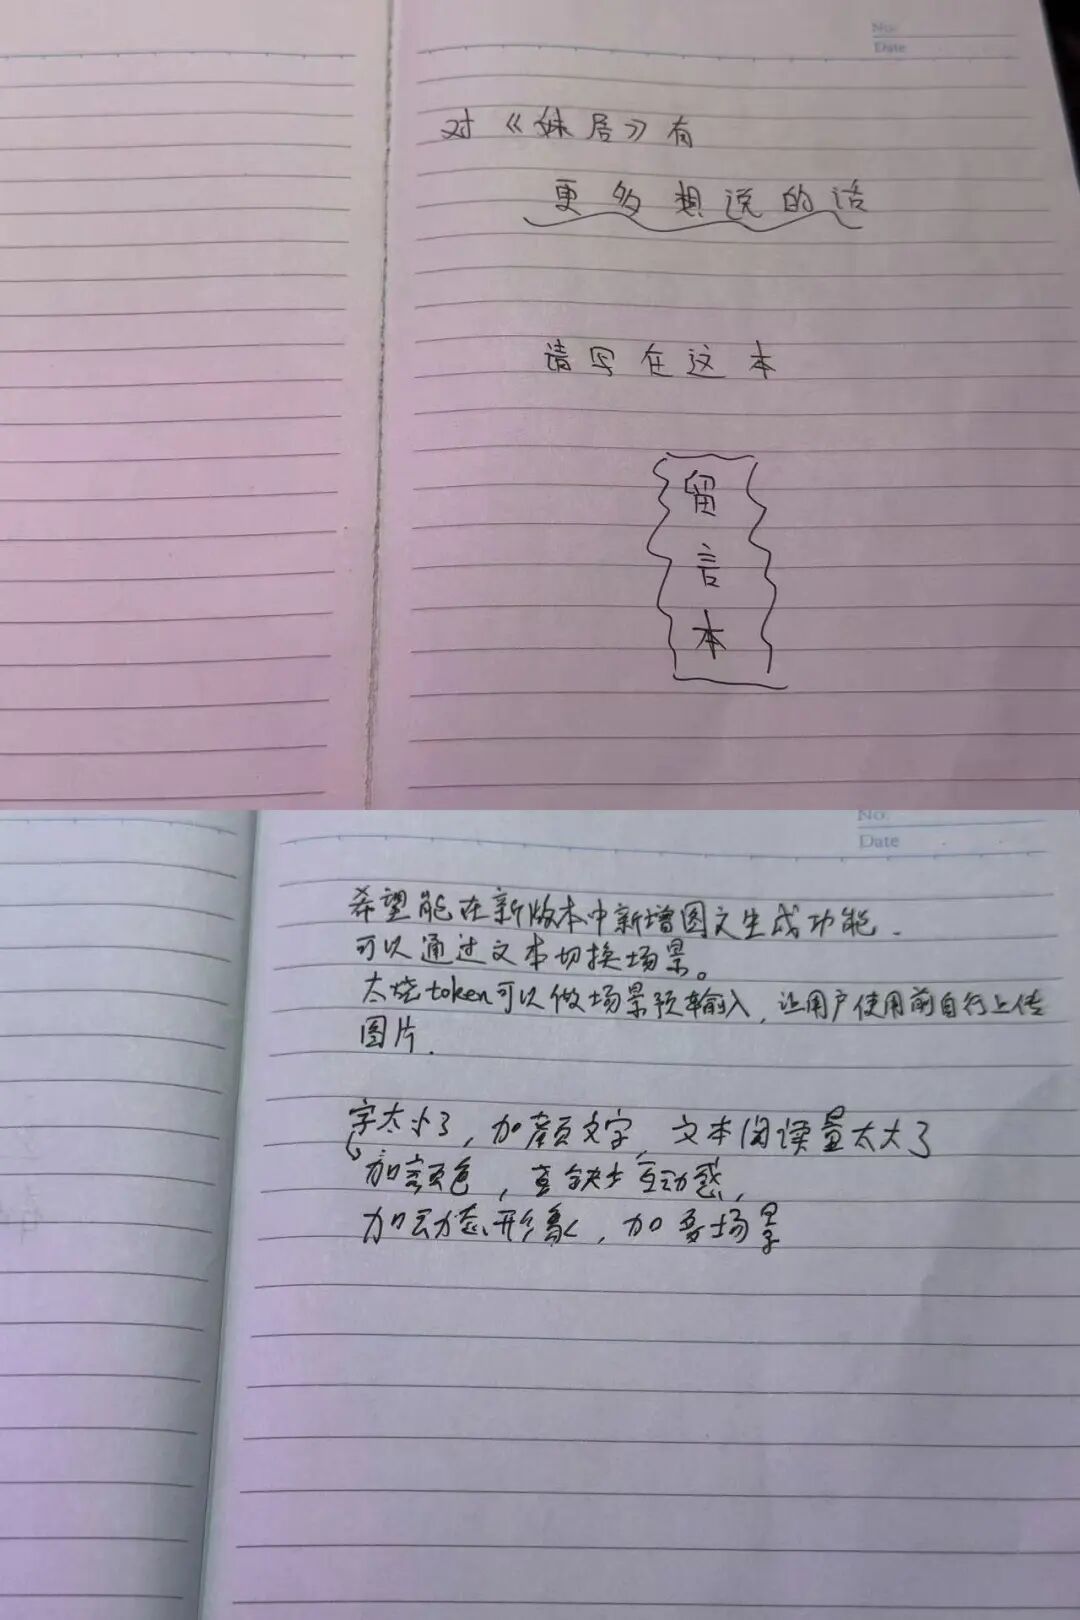 No.
Date
对《妹居》有
更多想说的话
请写在这本
留
言
本
No.
Date
希望能在新版本中新增图文生成功能.
可以通过文本切换场景。
太烧token可以做场景预输入,让用户使用前自行上传
图片.
字太小了,加颜文字,文本阅读量太大了
加颜色,缺少互动感,
加动态形象,加多场景